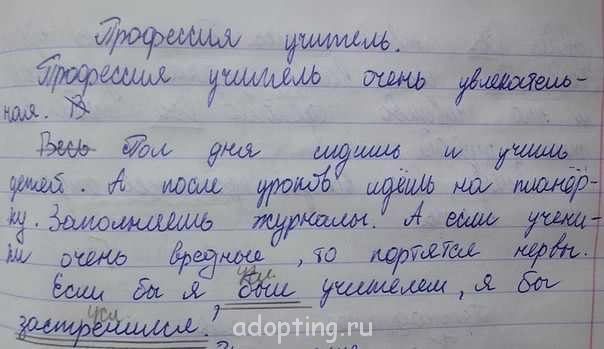 Профессия учитель.
Профессия учитель очень увлекатель-
ная. В
Весь Пол дня сидишь и учишь
детей. А после уроков идёшь на планёр-
ку. Заполняешь журналы. А если учени-
ки очень вредные, то портятся нервы.
усл.
Если бы я был учителем, я бы
усл
застрелился.
adopting.ru